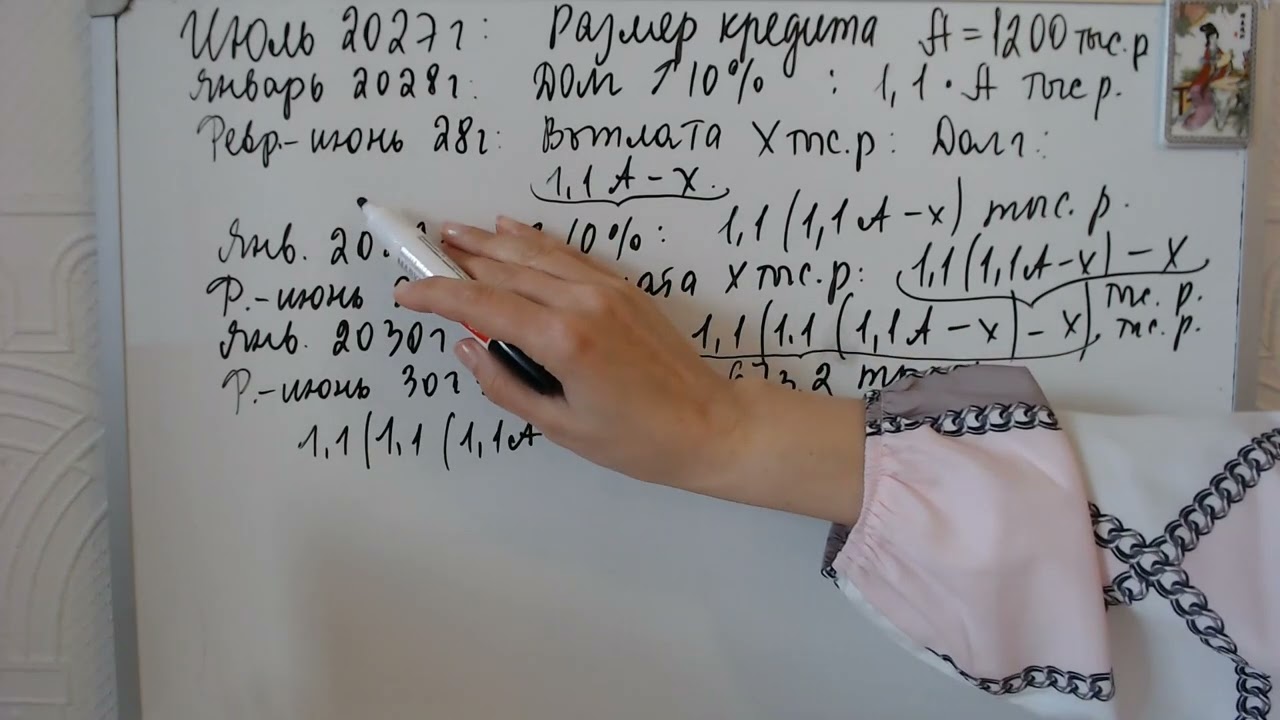 Июль 2027г: Размер кредита A = 1200 тыс.р
Январь 2028г: Долг ↑ 10% : 1,1 · A тыс р.
Февр.-июнь 28г: Выплата X тыс.р: Долг:
1,1 A - x.
Янв. 10%: 1,1 (1,1A - x) тыс. р.
Ф.-июнь X тыс.р: 1,1(1,1A-x) - x
тыс. р.
Янв. 2030г 1,1 (1.1 (1,1A - x) - x) тыс. р.
Ф.-июнь 30г
1,1 (1,1 (1,1A